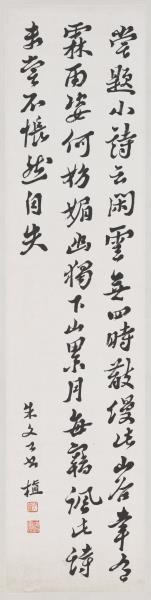 嘗題小詩云閑雲無四時散漫此山谷幸乏
霖雨姿何妨媚幽獨下山累月每竊諷此詩
未嘗不悵然自失
朱文公書 植